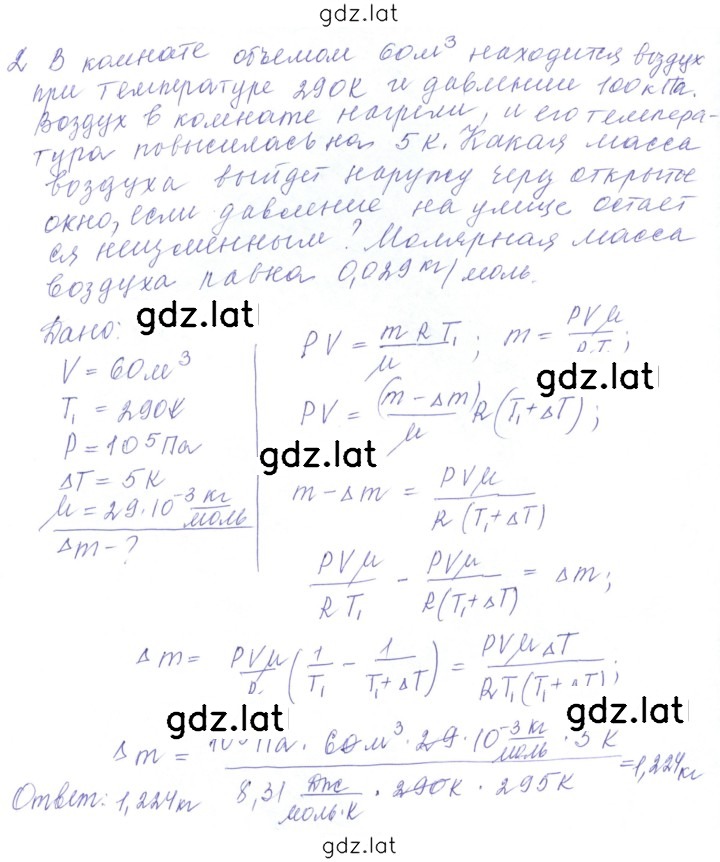 gdz.lat
2 В комнате объемом 60м³ находится воздух
при температуре 290К и давлении 100кПа.
Воздух в комнате нагрели, и его темпера-
тура повысилась на 5К. Какая масса
воздуха выйдет наружу через открытое
окно, если давление на улице остает
ся неизменным? Молярная масса
воздуха равна 0,029кг/моль.
Дано:
gdz.lat
V = 60м³
T₁ = 290К
P = 10⁵Па
ΔT = 5К
μ = 29·10⁻³ кг/моль
Δm - ?
PV = m R T₁ / μ ; m = PVμ / R T₁ ;
gdz.lat
PV = (m - Δm) / μ R(T₁ + ΔT);
gdz.lat
m - Δm = PVμ / R(T₁ + ΔT)
PVμ / R T₁ - PVμ / R(T₁ + ΔT) = Δm;
Δm = PVμ / R (1/T₁ - 1/(T₁ + ΔT)) = PVμΔT / RT₁(T₁ + ΔT);
gdz.lat
gdz.lat
Δm = 10⁵ Па · 60м³ · 29·10⁻³ кг/моль · 5К / 8,31 Дж/моль·К · 290К · 295К = 1,224кг
Ответ: 1,224кг
gdz.lat